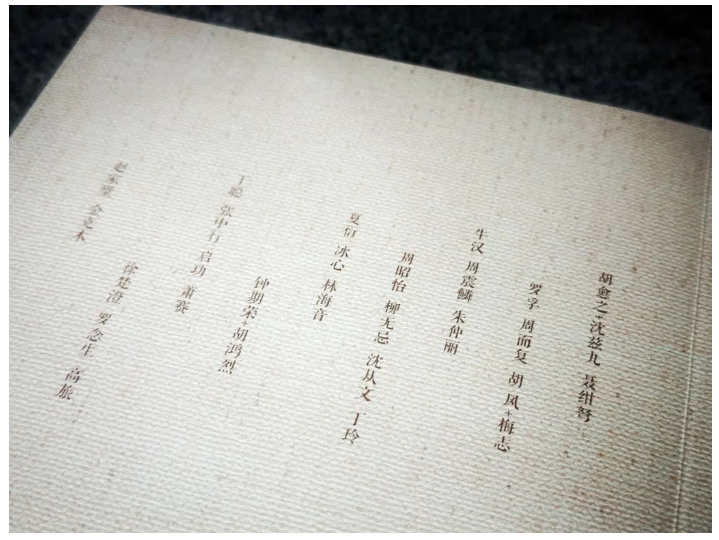 胡愈之+沈兹九 聂绀弩
罗孚 周而复 胡风+梅志
牛汉 周震鳞 朱仲丽
周昭怡 柳无忌 沈从文 丁玲
夏衍 冰心 林海音
钟期荣+胡鸿烈
丁聪 张中行 启功 萧赛
徐楚澄 罗念生 高旅
赵家璧 金克木